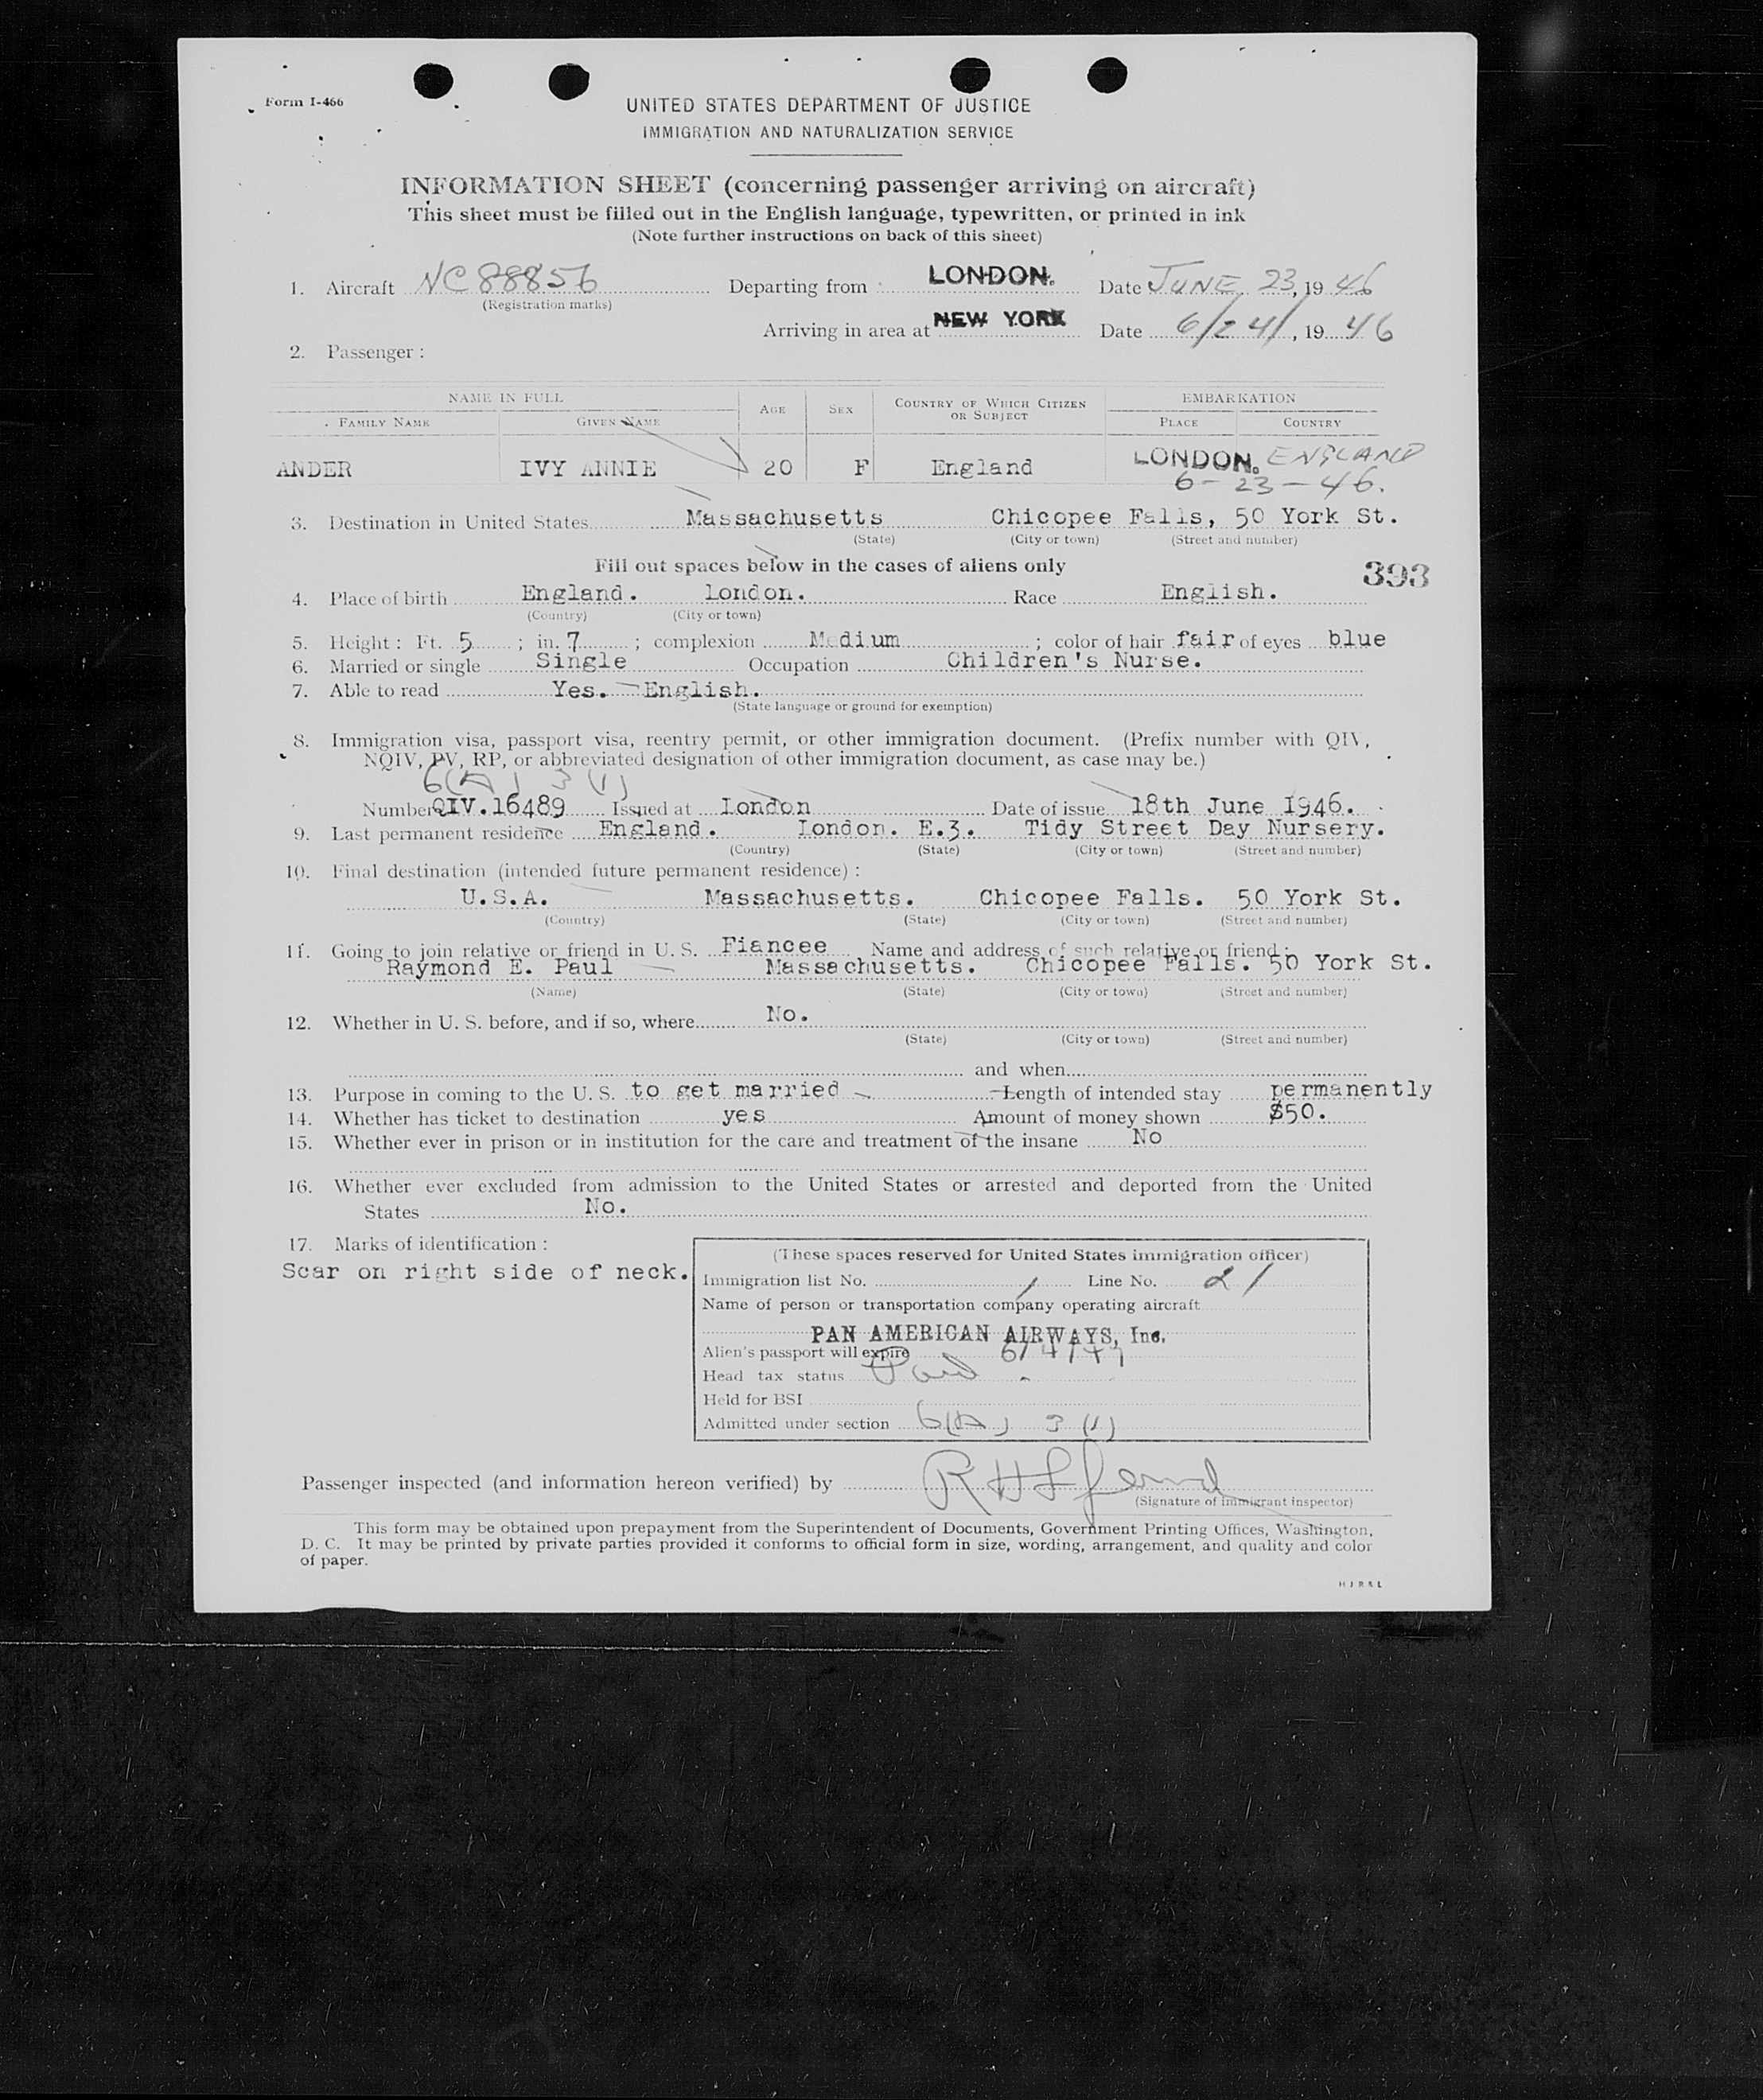 Form I-466
UNITED STATES DEPARTMENT OF JUSTICE
IMMIGRATION AND NATURALIZATION SERVICE
INFORMATION SHEET (concerning passenger arriving on aircraft)
This sheet must be filled out in the English language, typewritten, or printed in ink
(Note further instructions on back of this sheet)
1. Aircraft NC 88856 Departing from LONDON. Date JUNE 23, 1946
(Registration marks)
Arriving in area at NEW YORK Date 6/24/, 1946
2. Passenger :
NAME IN FULL AGE SEX COUNTRY OF WHICH CITIZEN OR SUBJECT EMBARKATION
FAMILY NAME GIVEN NAME PLACE COUNTRY
ANDER IVY ANNIE 20 F England LONDON. ENGLAND
6-23-46.
3. Destination in United States Massachusetts Chicopee Falls, 50 York St.
(State) (City or town) (Street and number)
Fill out spaces below in the cases of aliens only
393
4. Place of birth England. London. Race English.
(Country) (City or town)
5. Height : Ft. 5 ; in. 7 ; complexion Medium ; color of hair fair of eyes blue
6. Married or single Single Occupation Children's Nurse.
7. Able to read Yes. English.
(State language or ground for exemption)
8. Immigration visa, passport visa, reentry permit, or other immigration document. (Prefix number with QIV,
NQIV, PV, RP, or abbreviated designation of other immigration document, as case may be.)
6(A) 3(1)
Number QIV.16489 Issued at London Date of issue 18th June 1946.
9. Last permanent residence England. London. E.3. Tidy Street Day Nursery.
(Country) (State) (City or town) (Street and number)
10. Final destination (intended future permanent residence) :
U.S.A. Massachusetts. Chicopee Falls. 50 York St.
(Country) (State) (City or town) (Street and number)
11. Going to join relative or friend in U. S. Fiancee Name and address of such relative or friend :
Raymond E. Paul Massachusetts. Chicopee Falls. 50 York St.
(Name) (State) (City or town) (Street and number)
12. Whether in U. S. before, and if so, where No.
(State) (City or town) (Street and number)
and when
13. Purpose in coming to the U. S. to get married Length of intended stay permanently
14. Whether has ticket to destination yes Amount of money shown $50.
15. Whether ever in prison or in institution for the care and treatment of the insane No
16. Whether ever excluded from admission to the United States or arrested and deported from the United
States No.
17. Marks of identification :
Scar on right side of neck.
(These spaces reserved for United States immigration officer)
Immigration list No. 1 Line No. 21
Name of person or transportation company operating aircraft
PAN AMERICAN AIRWAYS, Inc.
Alien's passport will expire 6/4/47
Head tax status Paid
Held for BSI
Admitted under section 6(A) 3(1)
Passenger inspected (and information hereon verified) by
(Signature of immigrant inspector)
This form may be obtained upon prepayment from the Superintendent of Documents, Government Printing Offices, Washington,
D. C. It may be printed by private parties provided it conforms to official form in size, wording, arrangement, and quality and color
of paper.